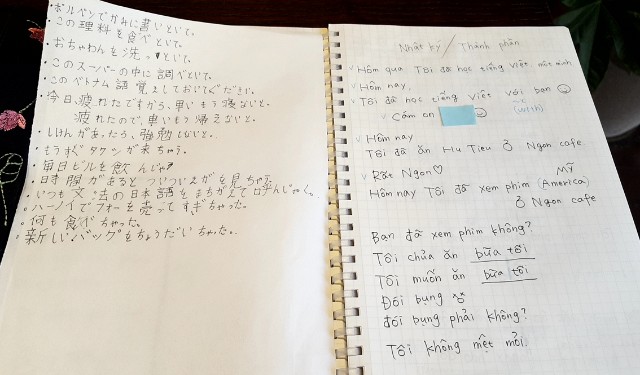 ・ボルペンでかみに書いといて。
・この理料を食べといて。
・おちゃわんを洗っといて。
・このスーパーの中に調べといて。
・このベトナム語覚えしておいてください。
・今日、疲れたですから、早いもう寝ないと。
疲れたので、早いもう帰えないと。
・しけんがあったら、強勉しないと。
・もうすぐタクシが来ちゃう。
・毎日ビルを飲んじゃ
・時間があるとついついえがを見ちゃう。
・いつも文法の日本語をまちがえて呼んじゃく。
・ハーノイでフォーを売ってすぎちゃった。
・何も食べちゃった。
・新しいバッグをちょうだいちゃった。
Nhật ký / Thành phần
Hôm qua Tôi đã học tiếng Việt một mình
Hôm nay,
Tôi đã học tiếng Việt với bạn
Cám ơn (with)
Hôm nay
Tôi đã ăn Hu Tieu Ở Ngon cafe
Rất Ngon♡
Hôm nay Tôi đã xem phim Mỹ (America)
Ở Ngon cafe
Bạn đã xem phim không?
Tôi chưa ăn bữa tối
Tôi muốn ăn bữa tối
Đói bụng
đói bụng phải không?
Tôi không mệt mỏi.